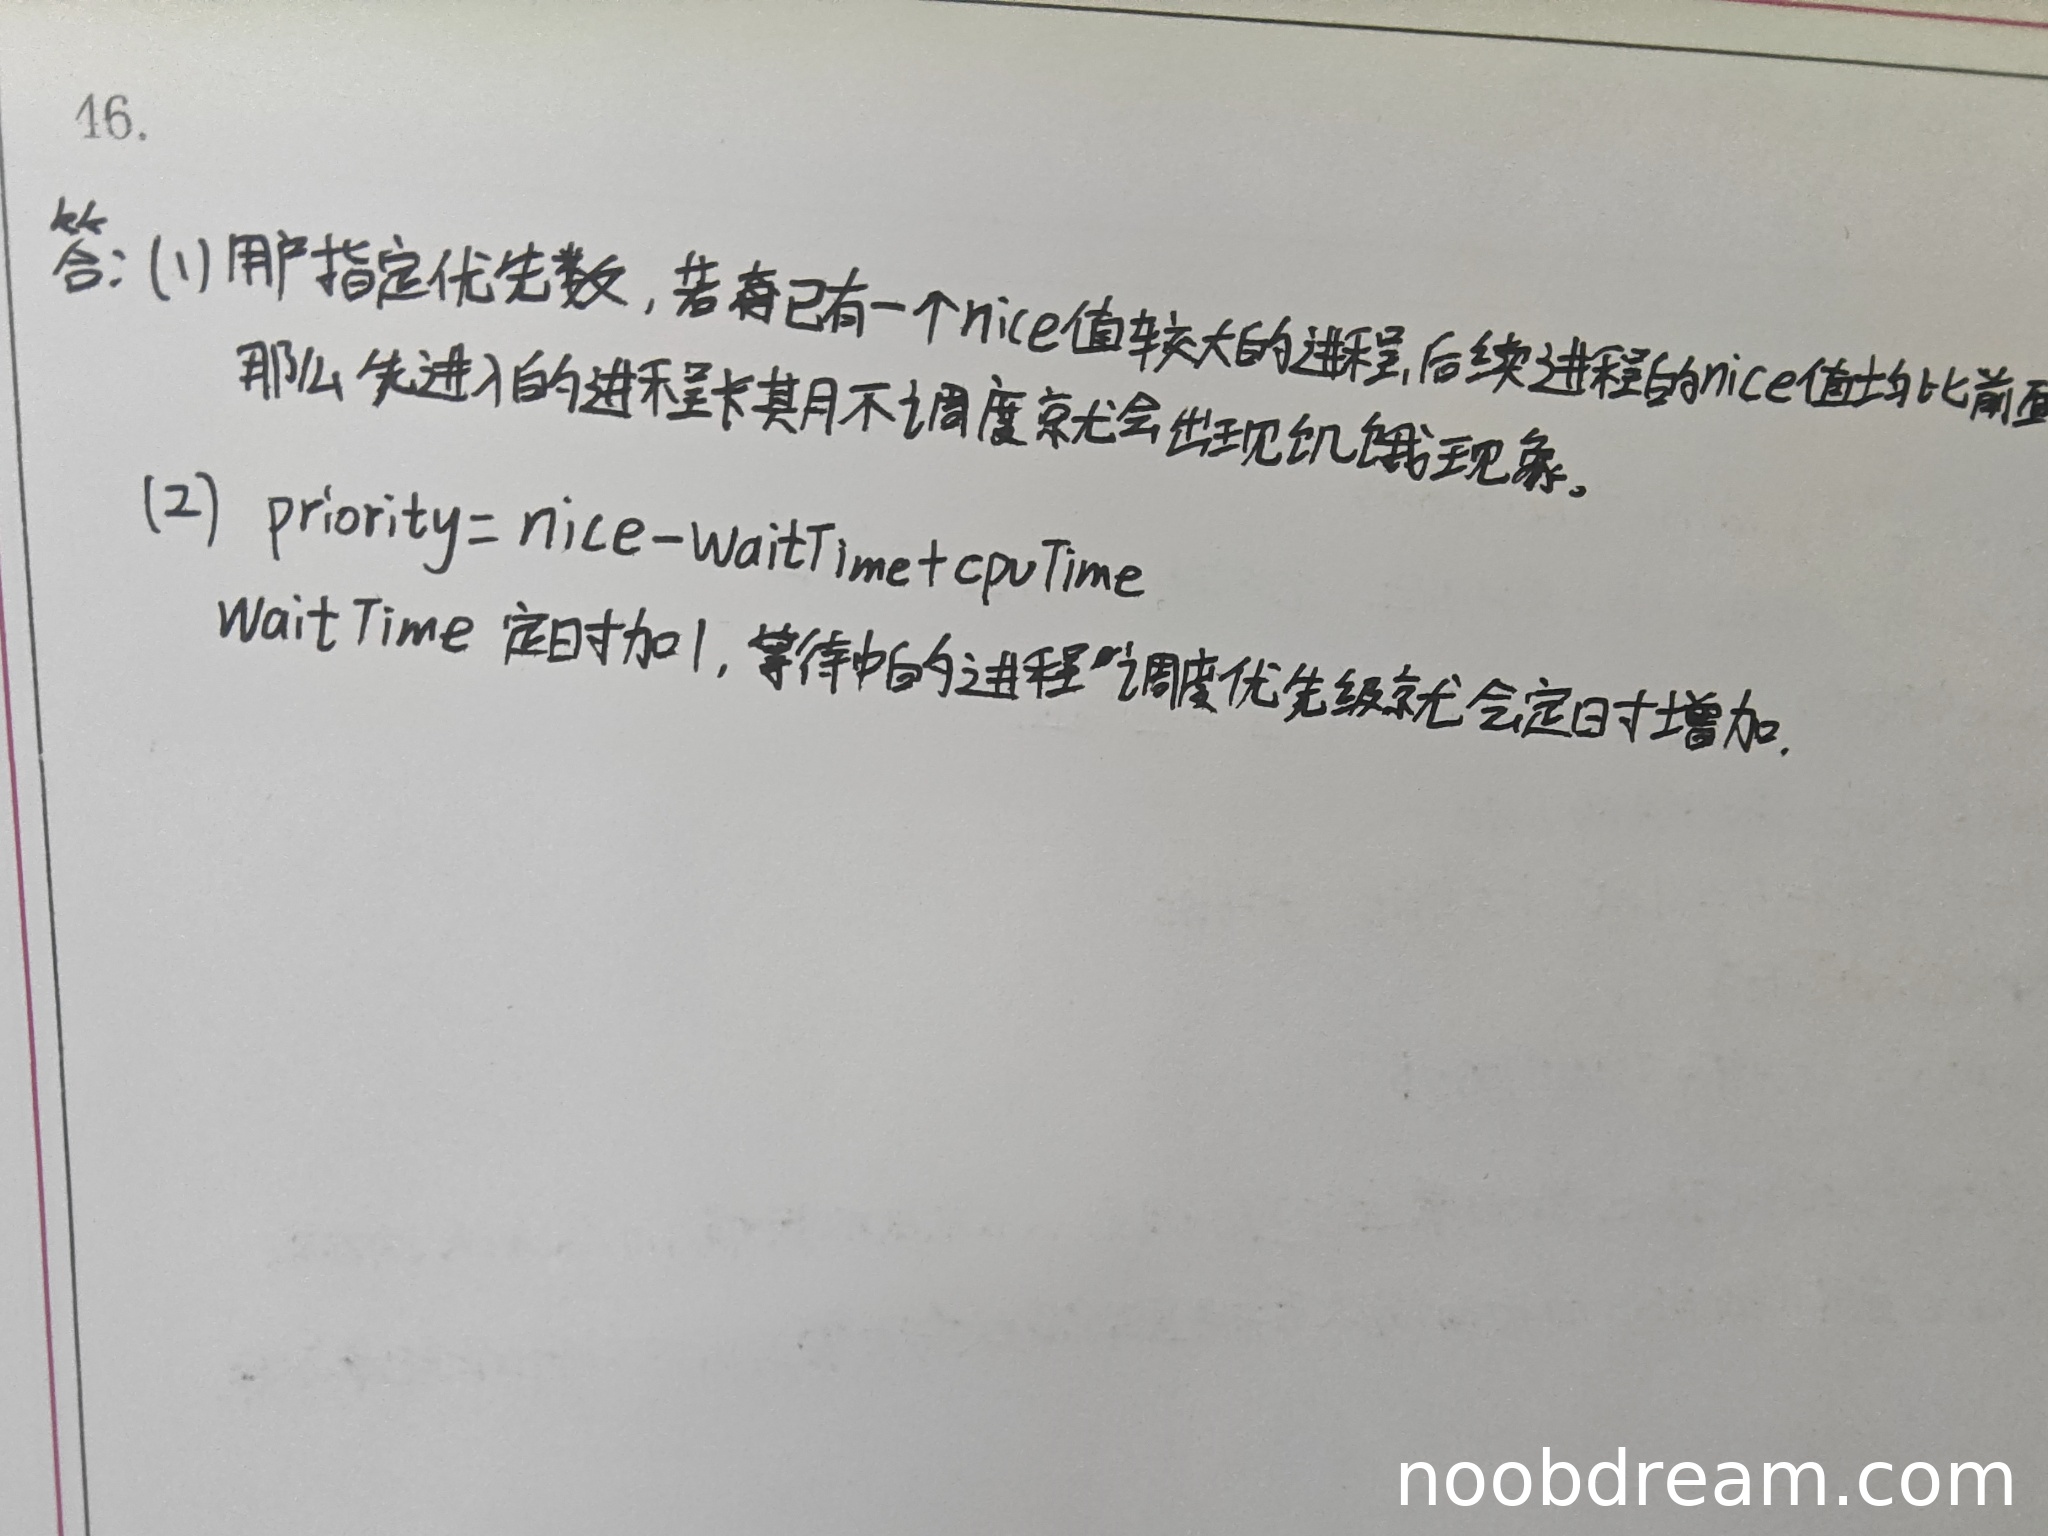 16.
答：(1)用户指定优先数，若存已有一个nice值较大的进程，后续进程的nice值均比前面
那么先进入的进程长期不调度就会出现饥饿现象。
(2) priority = nice-waitTime+cpuTime
waitTime 定时加1，等待中的进程 调度优先级就会定时增加.
noobdream.com